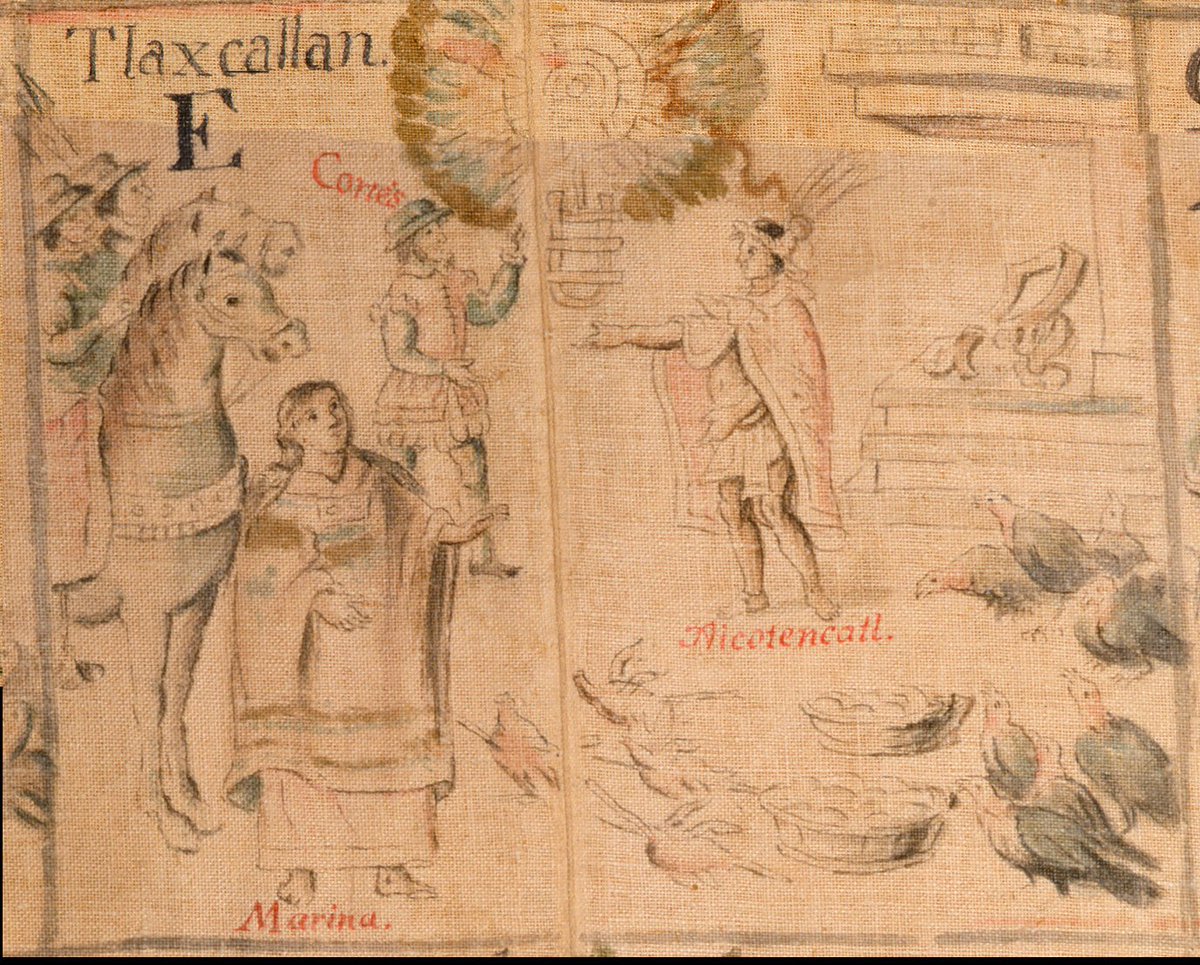 Tlaxcallan.
E
Cortés
Xicotencatl.
Marina.